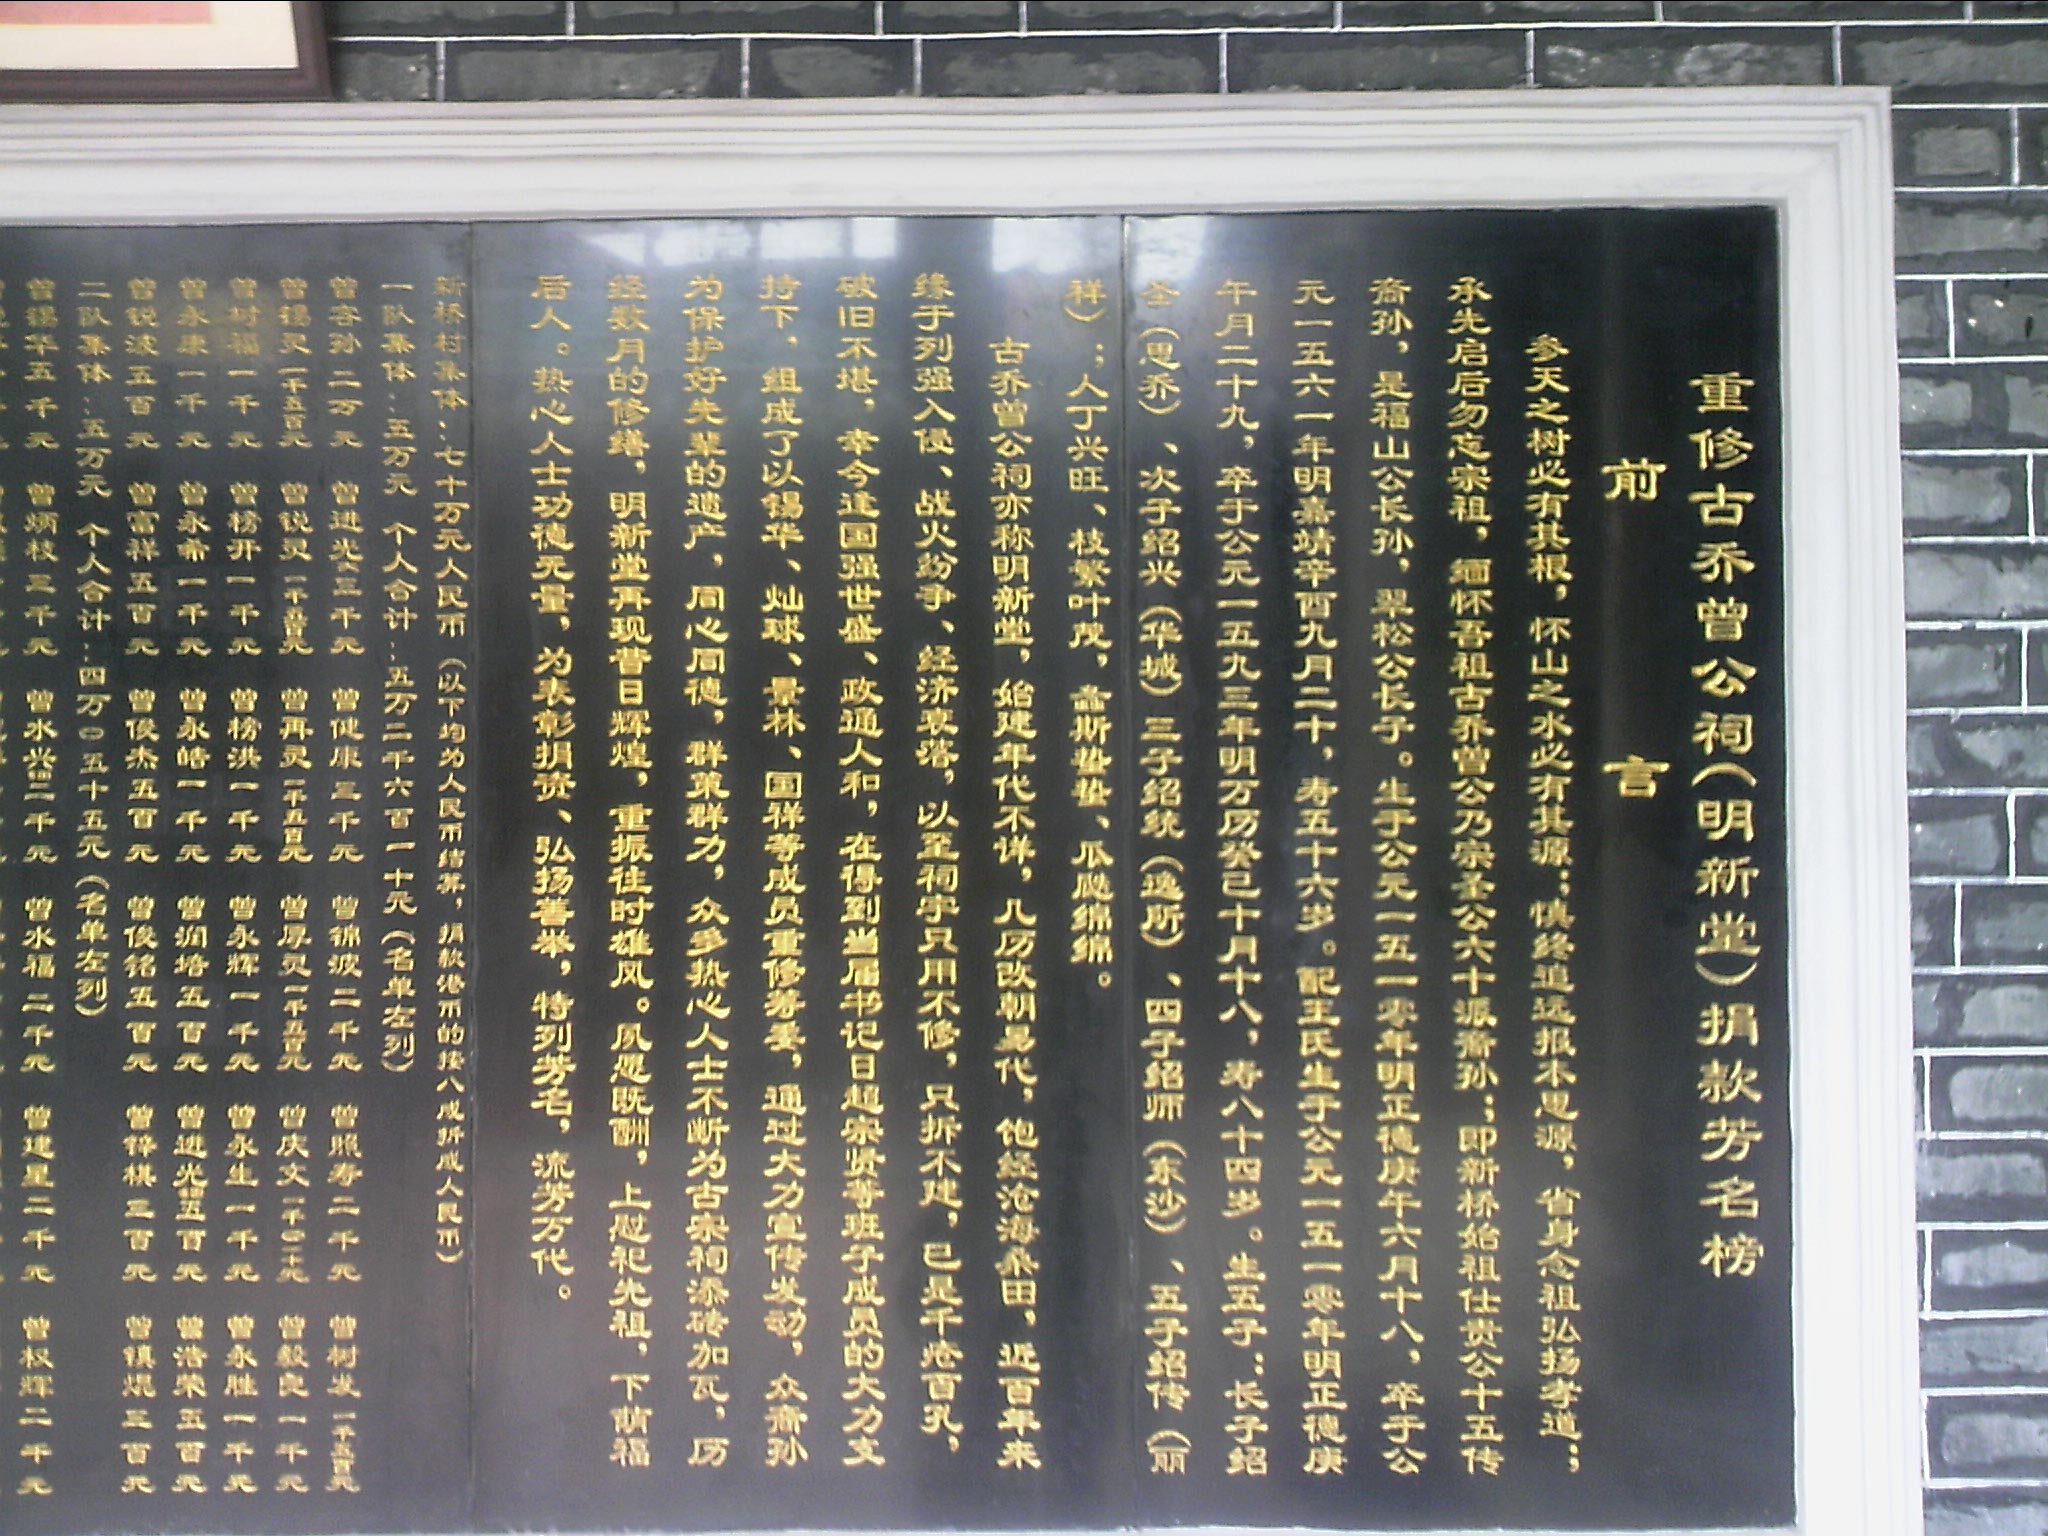 重修古乔曾公祠（明新堂）捐款芳名榜
前言
参天之树必有其根，怀山之水必有其源；慎终追远报本思源，省身念祖弘扬孝道；
承先启后勿忘宗祖，缅怀吾祖古乔曾公乃宗圣公六十派裔孙；即新桥始祖仕贵公十五传
裔孙，是福山公长孙，翠松公长子。生于公元一五一零年明正德庚午六月十八，卒于公
元一五六一年明嘉靖辛酉九月二十，寿五十六岁。配王氏生于公元一五一零年明正德庚
午月二十九，卒于公元一五九三年明万历癸己十月十八，寿八十四岁。生五子：长子绍
圣（思乔）、次子绍兴（华城）三子绍统（逸所）、四子绍师（东沙）、五子绍传（丽
祥）；人丁兴旺、枝繁叶茂，螽斯蛰蛰、瓜瓞绵绵。
古乔曾公祠亦称明新堂，始建年代不详，几历改朝易代，饱经沧海桑田，近百年来
缘于列强入侵、战火纷争、经济衰落，以至祠宇只用不修，只拆不建，已是千疮百孔，
破旧不堪，幸今逢国强世盛、政通人和，在得到当届书记日超宗贤等班子成员的大力支
持下，组成了以锡华、灿球、景林、国祥等成员重修筹委，通过大力宣传发动，众裔孙
为保护好先辈的遗产，同心同德，群策群力，众多热心人士不断为古宗祠添砖加瓦，历
经数月的修缮，明新堂再现昔日辉煌，重振往时雄风。夙愿既酬，上慰祀先祖，下荫福
后人。热心人士功德无量，为表彰捐资、弘扬善举，特列芳名，流芳万代。
新桥村集体：七十万元人民币（以下均为人民币结算，捐款港币的按八成折成人民币）
一队集体：五万元 个人合计：五万二千六百一十元（名单左列）
曾容孙二万元 曾进光三千元 曾健康三千元 曾锦波二千元 曾照寿二千元 曾树发一千五百元
曾锡灵一千五百元 曾锐灵一千五百元 曾再灵一千五百元 曾厚灵一千五百元 曾庆文一千〇二十元 曾毅良一千元
曾树福一千元 曾榜开一千元 曾榜洪一千元 曾永辉一千元 曾永生一千元 曾永胜一千元
曾永康一千元 曾永希一千元 曾永皓一千元 曾润培五百元 曾进光五百元 曾浩荣五百元
曾锐波五百元 曾富祥五百元 曾俊杰五百元 曾俊铭五百元 曾锌棋三百元 曾镇焜三百元
二队集体：五万元 个人合计：四万〇五十五元（名单左列）
曾锡华五千元 曾炳枝三千元 曾水兴二千元 曾水福二千元 曾建星二千元 曾权辉二千元